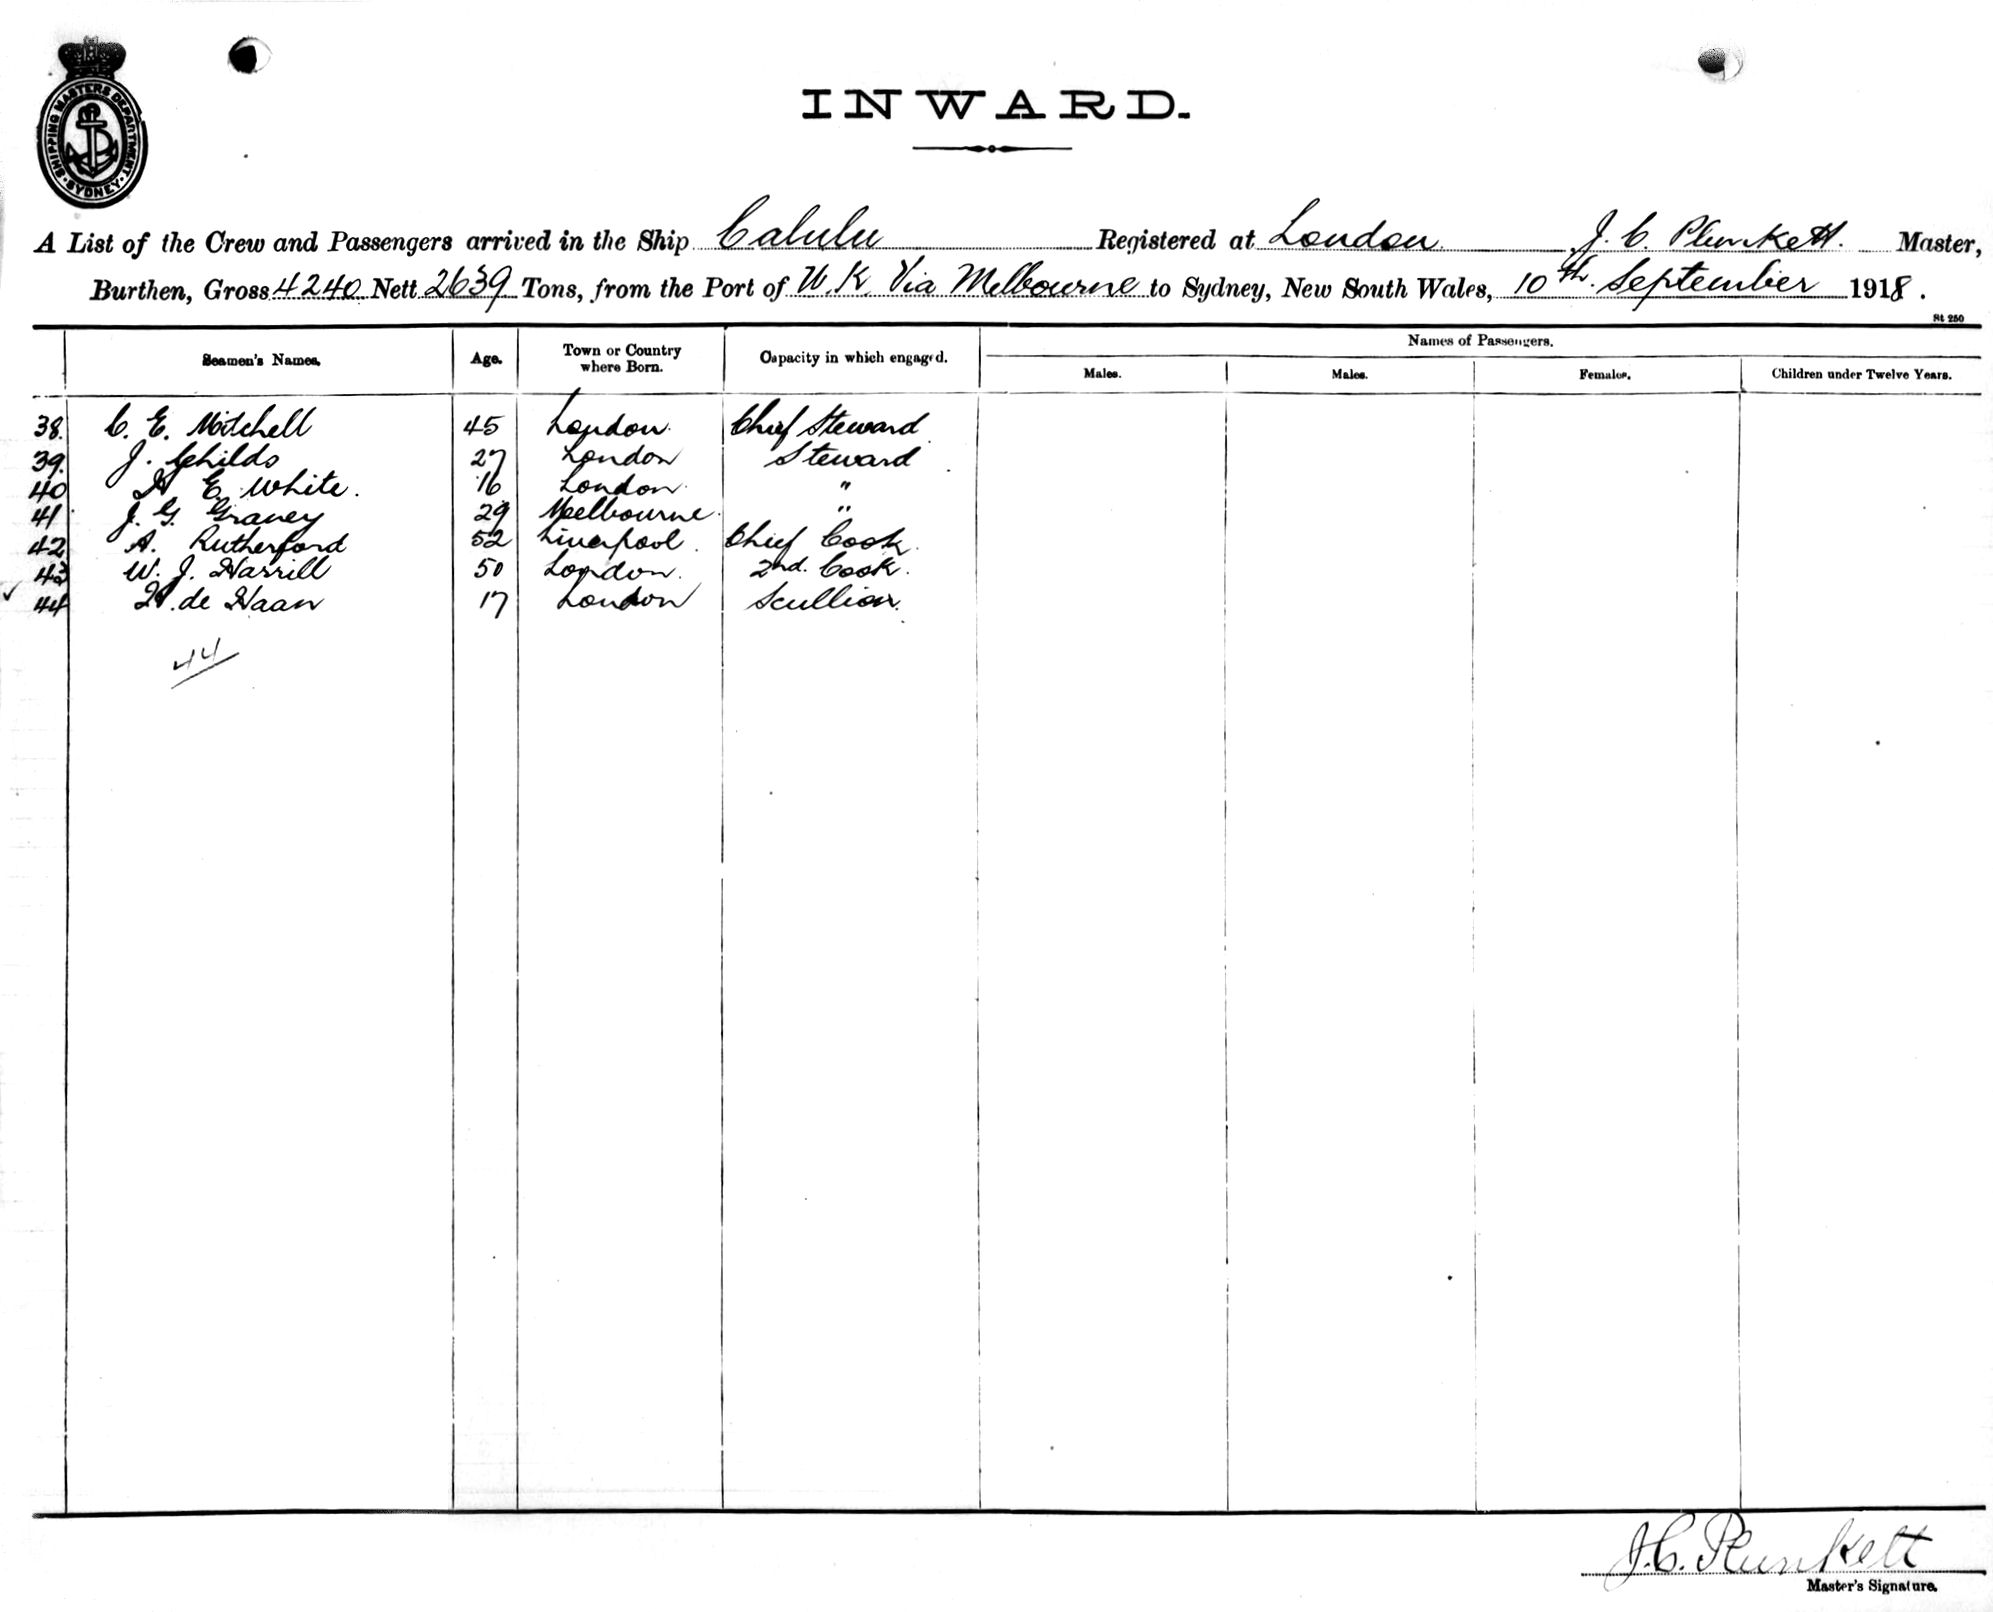 SHIPPING MASTERS DEPARTMENT · SYDNEY ·
INWARD.
A List of the Crew and Passengers arrived in the Ship Calulu Registered at London J. C. Plunkett. Master,
Burthen, Gross 4240 Nett 2639 Tons, from the Port of U.K. Via Melbourne to Sydney, New South Wales, 10th. September 1918.
St 250
Seamen's Names. Age. Town or Country where Born. Capacity in which engaged. Names of Passengers.
Males. Males. Females. Children under Twelve Years.
38. C. E. Mitchell 45 London. Chief Steward
39. J. Childs 27 London Steward
40 H E. White. 16 London. "
41 J. G. Graney 29 Melbourne. "
42 A. Rutherford 52 Liverpool. Chief Cook.
43 W. J. Harrill 50 London. 2nd. Cook.
44 H. de Haan 17 London Scullion.
44
J. C. Plunkett
Master's Signature.